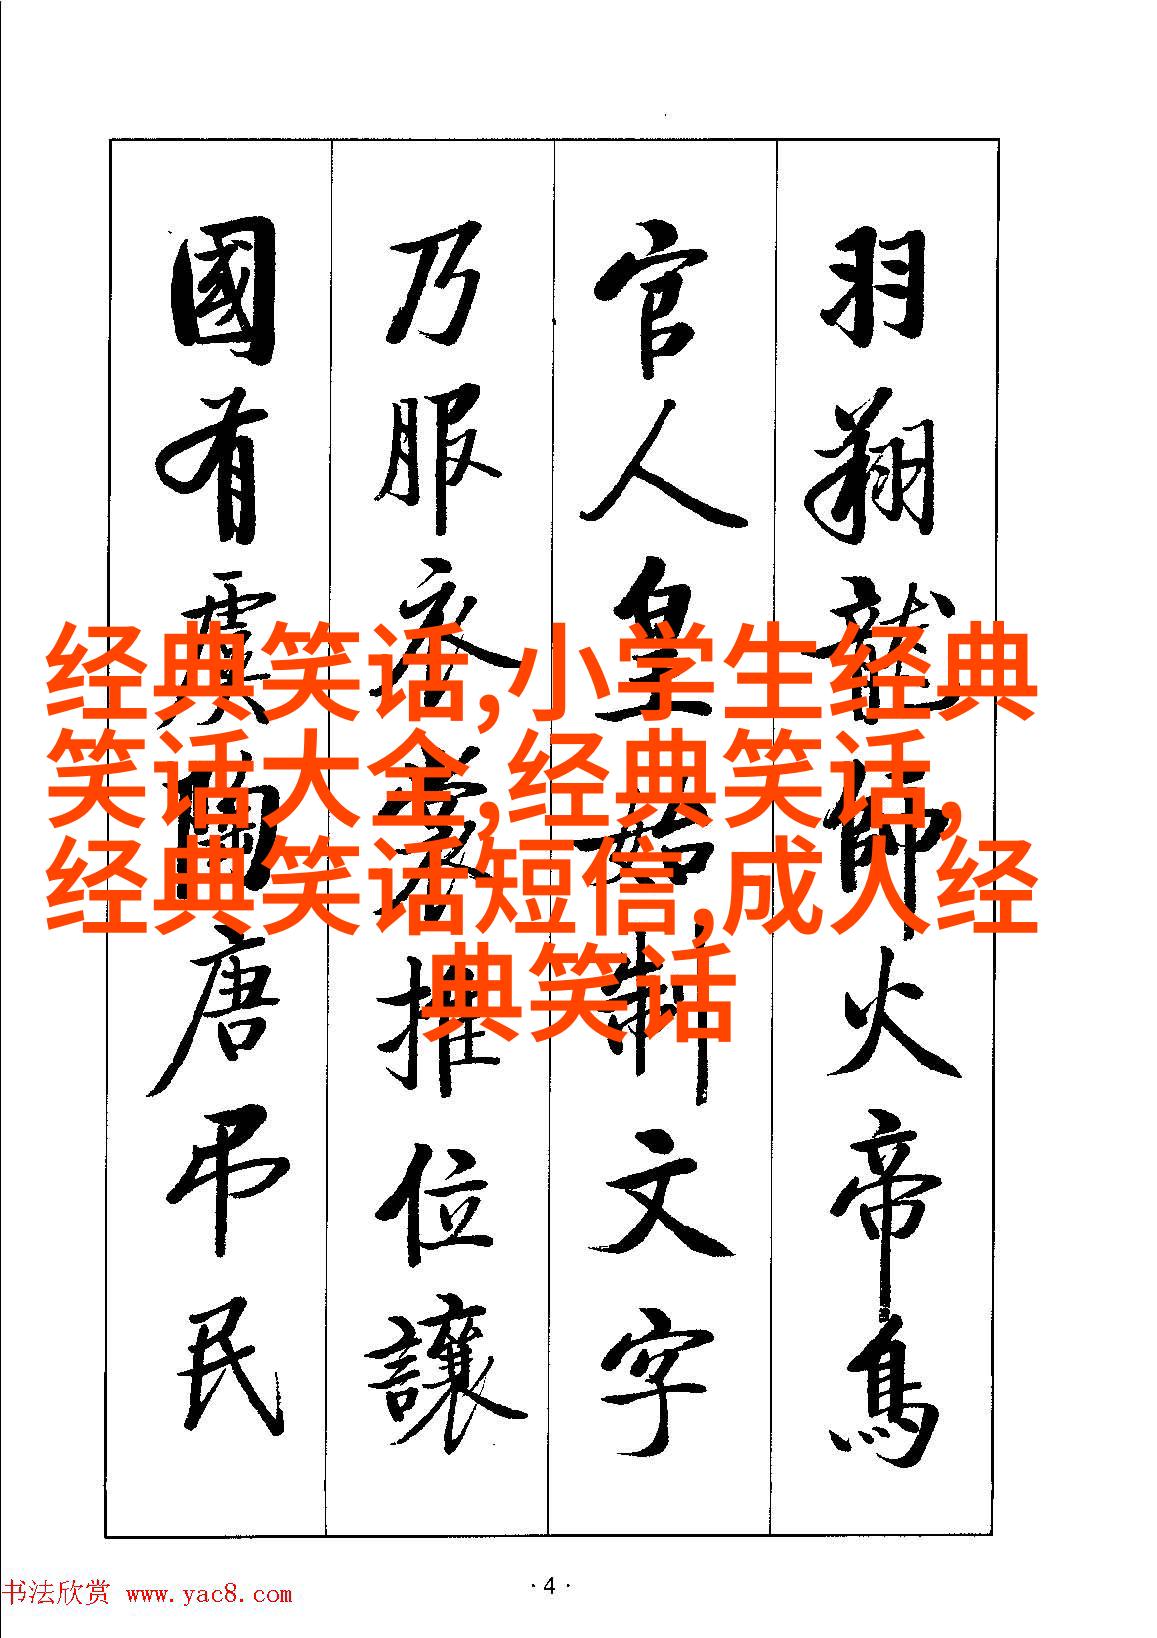 羽翔龍師火帝鳥
官人皇始制文字
乃服衣裳推位讓
國有虞陶唐弔民
经典笑话,小学生经典
笑话大全,经典笑话,
经典笑话短信,成人经
典笑话
·4·
书法欣赏 www.yac8.com